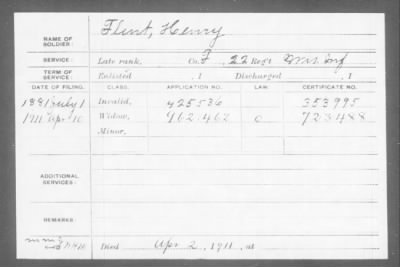 NAME OF SOLDIER: Flint, Henry
SERVICE: Late rank, Co. F, 22 Reg't Wis Inf
TERM OF SERVICE: Enlisted , 1 Discharged , 1
DATE OF FILING. CLASS. APPLICATION NO. LAW. CERTIFICATE NO.
1881 July 1 Invalid, 425586 353995
1911 Apr 10 Widow, 962.462 O 723488
Minor,
ADDITIONAL SERVICES:
REMARKS:
Died Apr 2, 1911, at